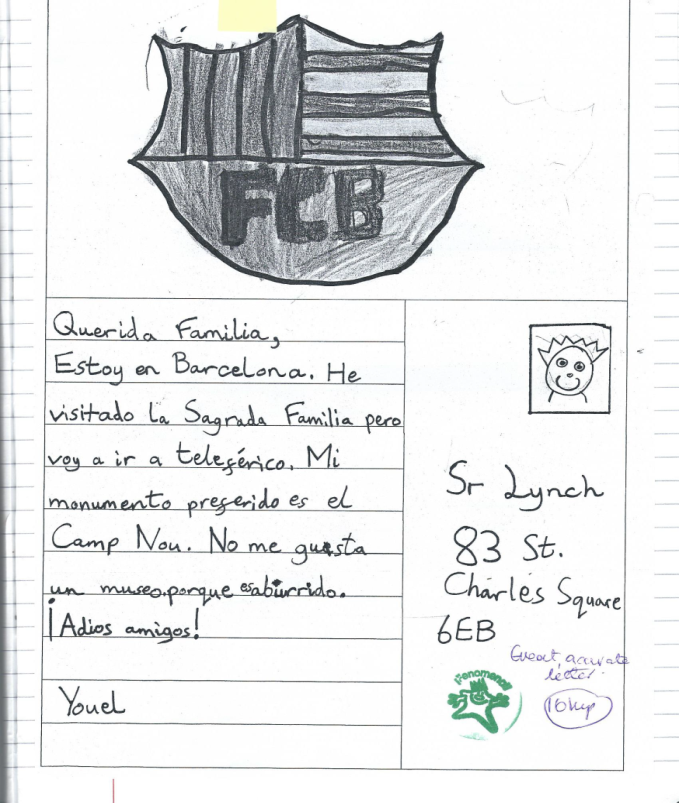 FCB
Querida Familia,
Estoy en Barcelona. He
visitado la Sagrada Familia pero
voy a ir a teleférico. Mi
monumento preferido es el
Camp Nou. No me gusta
un museo.porque es aburrido.
¡Adios amigos!
Youel
Sr Lynch
83 St.
Charles Square
6EB
Great, accurate
letter.
¡Fenomenal!